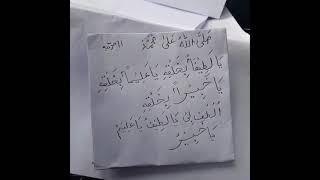 صَلَّى اللهُ عَلَى مُحَمَّدْ ١١مرتبه
يَا لَطِيفًا بِخَلْقِهِ يَا عَلِيمًا بِخَلْقِهِ
يَا خَبِيرًا بِخَلْقِهِ
اُلْطُفْ لِي يَا لَطِيفُ يَا عَلِيمُ
يَا خَبِيرُ